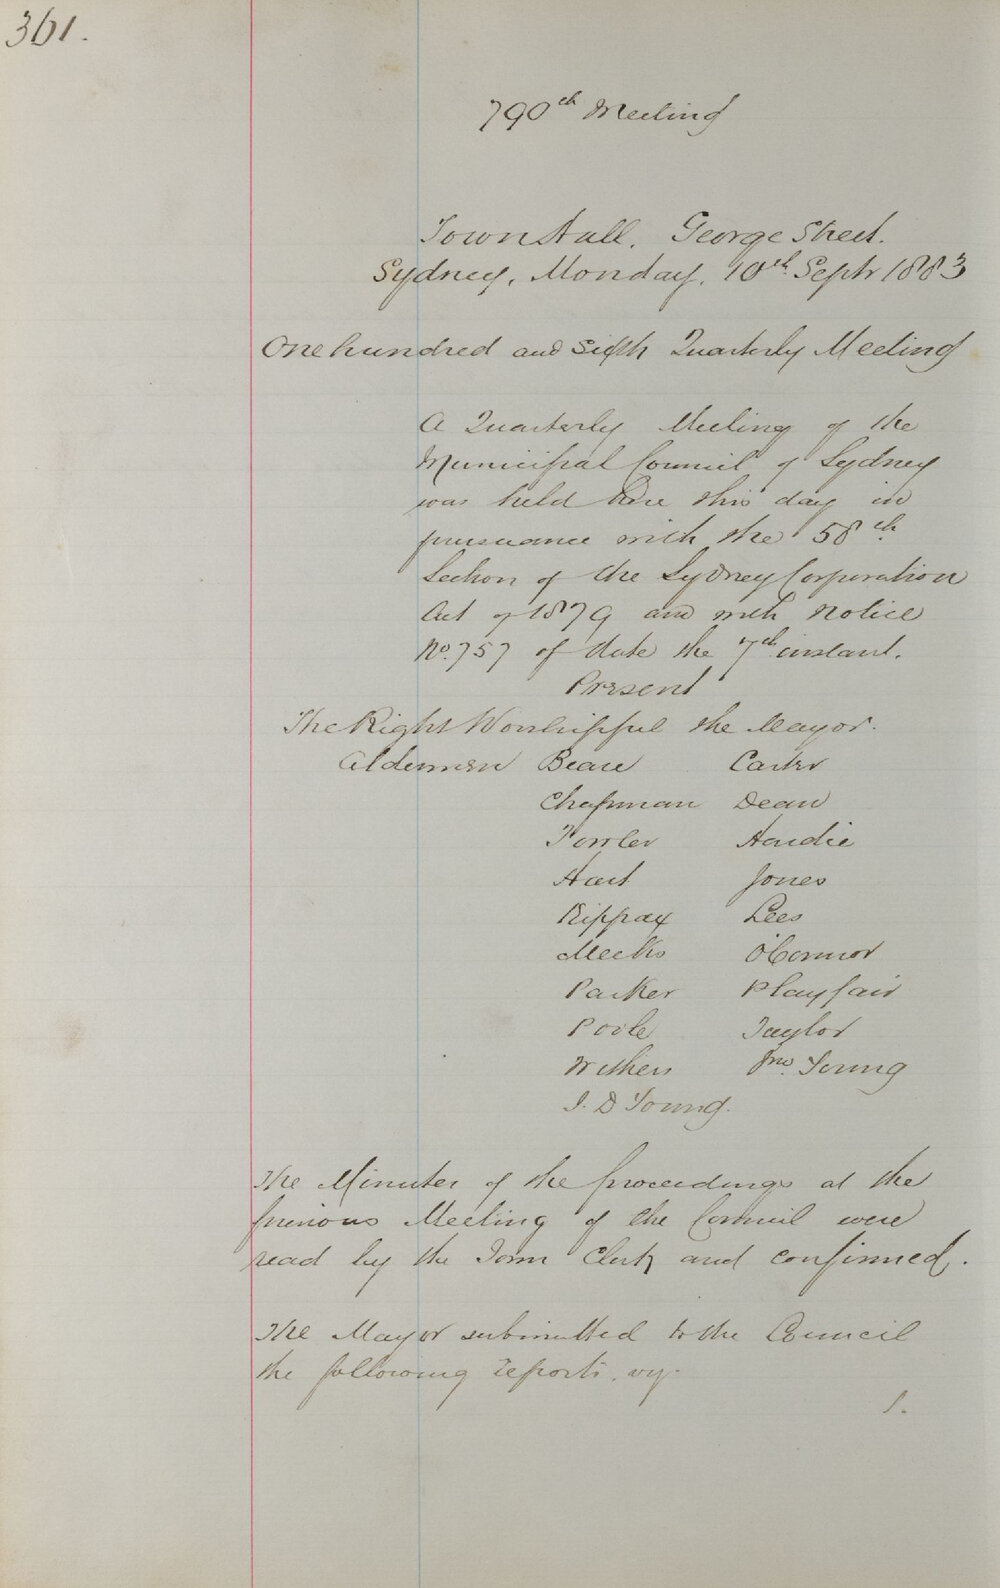 361.
790th Meeting
Town Hall, George Street.
Sydney, Monday, 10th Septr 1883
One hundred and sixth Quarterly Meeting
A Quarterly Meeting of the
Municipal Council of Sydney
was held here this day in
pursuance with the 58th
Section of the Sydney Corporation
Act of 1879 and with notice
No. 757 of date the 7th instant.
Present
The Right Worshipful the Mayor.
Aldermen Beare Carter
Chapman Dean
Fowler Hardie
Hart Jones
Kippax Lees
Meeks O'Connor
Parker Playfair
Poole Taylor
Withers Jno. Young
J. D Young.
The Minutes of the proceedings at the
previous Meeting of the Council were
read by the Town Clerk and confirmed.
The Mayor submitted to the Council
the following reports, viz.
1.